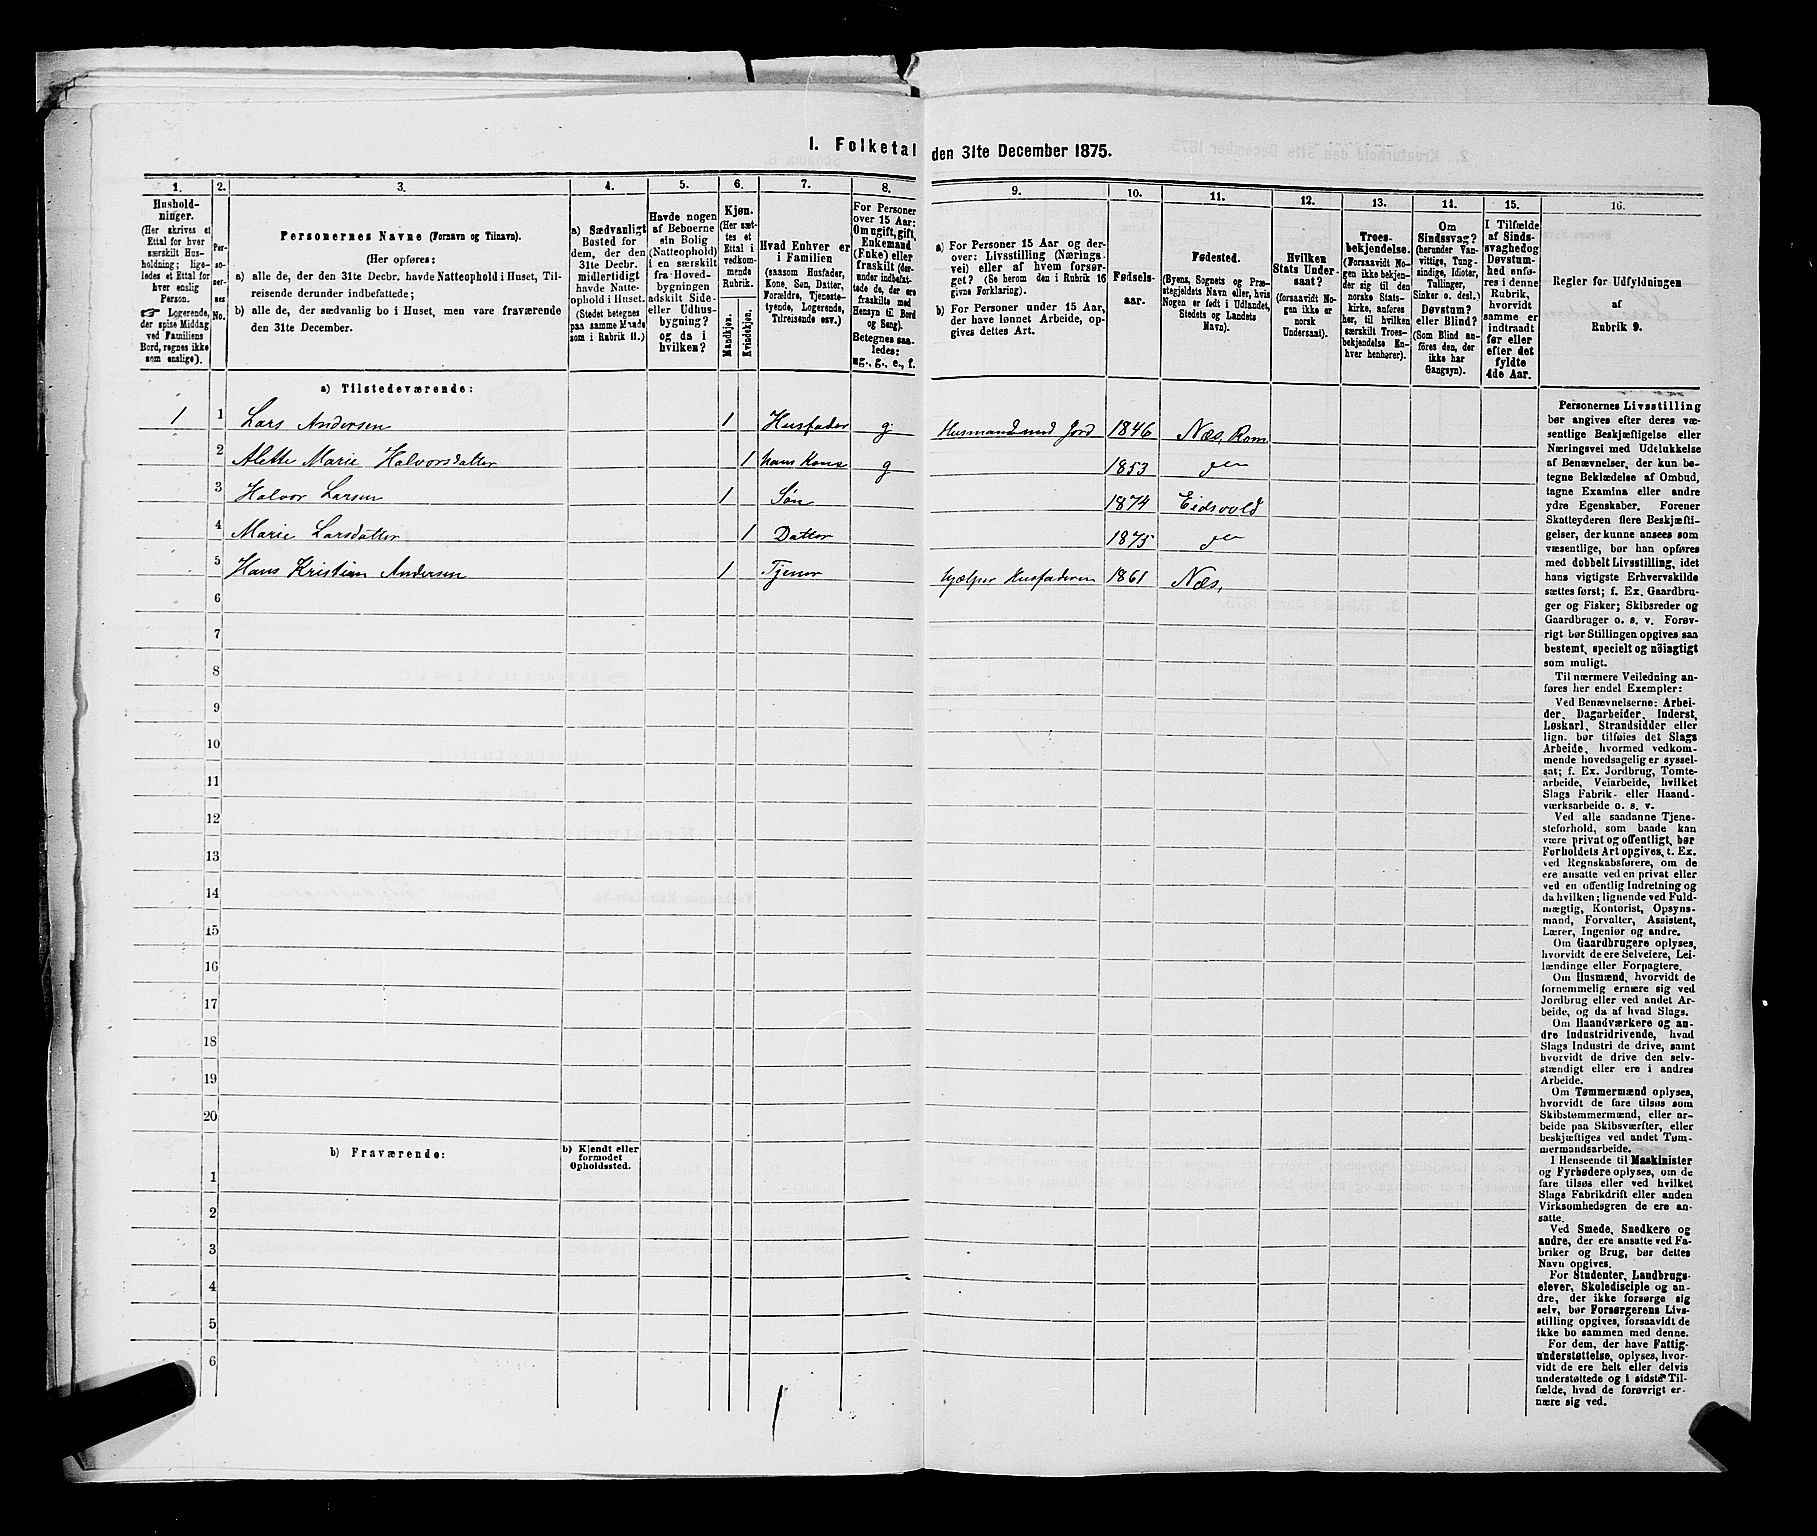 I. Folketal den 31te December 1875.
1.
2.
3.
4.
5.
6.
7.
8.
9.
10.
11.
12.
13.
14.
15.
16.
Hushold-
ninger.
(Her skrives et
Ettal for hver
særskilt Hus-
holdning; lige-
ledes et Ettal for
hver enslig
Person.
☞ Logerende,
der spise Middag
ved Familiens
Bord, regnes ikke
som enslige).
Per-
so-
ner-
nes
No.
Personernes Navne (Fornavn og Tilnavn).
(Her opføres:
a) alle de, der den 31te Decbr. havde Natteophold i Huset, Til-
reisende derunder indbefattede;
b) alle de, der sædvanlig bo i Huset, men vare fraværende
den 31te December.
a) Sædvanligt
Bosted for
dem, der den
31te Decbr.
midlertidigt
havde Natte-
ophold i Huset.
(Stedet betegnes
paa samme Maade
som i Rubrik 11.)
Havde nogen
af Beboerne
sin Bolig
(Natteophold)
i en særskilt
fra Hoved-
bygningen
adskilt Side-
eller Udhus-
bygning?
og da i
hvilken?
Kjøn.
(Her sæt-
tes et
Ettal i
vedkom-
mende
Rubrik.
Mandkjøn.
Kvindekjøn.
Hvad Enhver er
i Familien
(saasom Husfader,
Kone, Søn, Datter,
Forældre, Tjeneste-
tyende, Logerende,
Tilreisende osv.)
For Personer
over 15 Aar:
Om ugift, gift,
Enkemand
(Enke) eller
fraskilt (der-
under indbefat-
tede de, der ere
fraskilte med
Hensyn til Bord
og Seng).
Betegnes saa-
ledes:
ug., g., e., f.
a) For Personer 15 Aar og der-
over: Livsstilling (Nærings-
vei) eller af hvem forsør-
get? (Se herom den i Rubrik 16
givne Forklaring).
b) For Personer under 15 Aar,
der have lønnet Arbeide, op-
gives dettes Art.
Fødsels-
aar.
Fødested.
(Byens, Sognets og Præ-
stegjeldets Navn eller, hvis
Nogen er født i Udlandet,
Stedets og Landets
Navn).
Hvilken
Stats Under-
saat?
(forsaavidt No-
gen ikke er
norsk
Undersaat).
Troes-
bekjendelse.
(Forsaavidt No-
gen ikke bekjen-
der sig til den
norske Stats-
kirke, anføres
her, til hvilken
særskilt Troes-
bekjendelse En-
hver henhører).
Om
Sindssvag?
(herunder Van-
vittige, Tung-
sindige, Idioter,
Tullinger,
Sinker o. desl.)
Døvstum?
eller Blind?
(Som Blind an-
føres den, der
ikke har
Gangsyn).
I Tilfælde
af Sinds-
svaghed og
Døvstum-
hed enfø-
res i denne
Rubrik,
hvorvidt
samme er
indtraadt
før eller
efter det
fyldte
4de Aar.
Regler for Udfyldningen
af
Rubrik 9.
a) Tilstedeværende:
1 1 Lars Andersen 1 Husfader g Husmand med Jord 1846 Næs, Rom
2 Alette Marie Halvorsdatter 1 hans Kone g 1853 do
3 Halvor Larsen 1 Søn 1874 Eidsvold
4 Marie Larsdatter 1 Datter 1875 do
5 Hans Kristian Andersen 1 Tjener hjælper Husfaderen 1861 Næs,
6
7
8
9
10
11
12
13
14
15
16
17
18
19
20
b) Fraværende:
b) Kjendt eller
formodet
Opholdssted.
1
2
3
4
5
6
Personernes Livsstilling
bør angives efter deres væ-
sentlige Beskjæftigelse eller
Næringsvei med Udelukkelse
af Benævnelser, der kun be-
tegne Beklædelse af Ombud,
tagne Examina eller andre
ydre Egenskaber. Forener
Skatteyderen flere Beskjæfti-
gelser, der kunne ansees som
væsentlige, bør han opføres
med dobbelt Livsstilling, idet
hans vigtigste Erhvervskilde
sættes først; f. Ex. Gaardbru-
ger og Fisker; Skibsreder og
Gaardbruger o. s. v. Forøv-
rigt bør Stillingen opgives saa
bestemt, specielt og nöiagtigt
som muligt.
Til nærmere Veiledning an-
føres her endel Exempler:
Ved Benævnelserne: Arbei-
der, Dagarbeider, Inderst,
Løskarl, Strandsidder eller
lign. bør tilføies det Slags
Arbeide, hvormed vedkom-
mende hovedsagelig er syssel-
sat; f. Ex. Jordbrug, Tomte-
arbeide, Veiarbeide, hvilket
Slags Fabrik- eller Haand-
værksarbeide o. s. v.
Ved alle saadanne Tjene-
steforhold, som baade kan
være privat og offentligt, bør
Forholdets Art opgives, t. Ex.
ved Regnskabsførere, om de
ere ansatte ved en privat eller
ved en offentlig Indretning og
da hvilken; lignende ved Fuld-
mægtig, Kontorist, Opsyns-
mand, Forvalter, Assistent,
Lærer, Ingeniør og andre.
Om Gaardbrugere oplyses,
hvorvidt de ere Selveiere, Lei-
lændinge eller Forpagtere.
Om Husmænd, hvorvidt de
fornemmelig ernære sig ved
Jordbrug eller ved andet Ar-
beide, og da af hvad Slags.
Om Haandværkere og an-
dre Industridrivende, hvad
Slags Industri de drive, samt
hvorvidt de drive den selv-
stændigt eller ere i andres
Arbeide.
Om Tømmermænd oplyses,
hvorvidt de fare tilsøs som
Skibstømmermænd, eller ar-
beide paa Skibsværfter, eller
beskjæftiges ved andet Tøm-
mermandsarbeide.
I Henseende til Maskinister
og Fyrbødere oplyses, om de
fare tilsøs eller ved hvilket
Slags Fabrikdrift eller anden
Virksomhedsgren de ere an-
satte.
Ved Smede, Snedkere og
andre, der ere ansatte ved Fa-
briker og Brug, bør dettes
Navn opgives.
For Studenter, Landbrugs-
elever, Skoledisciple og an-
dre, der ikke forsørge sig
selv, bør Forsørgerens Livs-
stilling opgives, forsaavidt de
ikke bo sammen med denne.
For dem, der have Fattig-
understøttelse, oplyses, hvor-
vidt de ere helt eller delvis
understøttede og i sidste Til-
fælde, hvad de forøvrigt er-
nære sig ved.